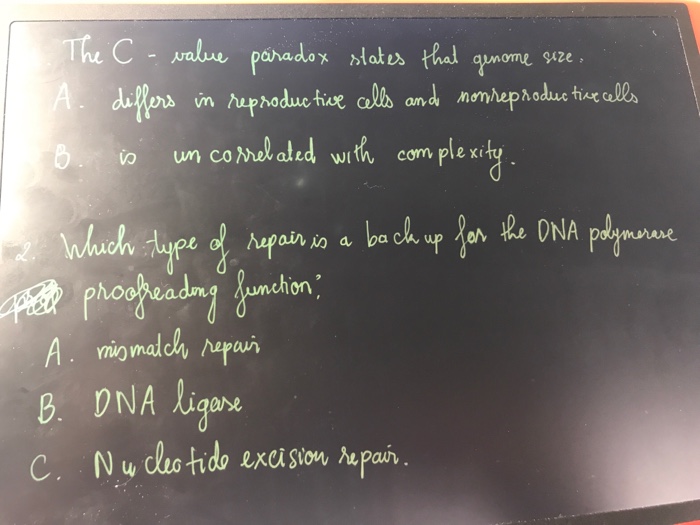 The C - value paradox states that genome size.
A. differs in reproductive cells and nonreproductive cells
B. is uncorrelated with complexity.
2. Which type of repair is a back up for the DNA polymerase
proofreading function?
A. mismatch repair
B. DNA ligase
C. Nucleotide excision repair.